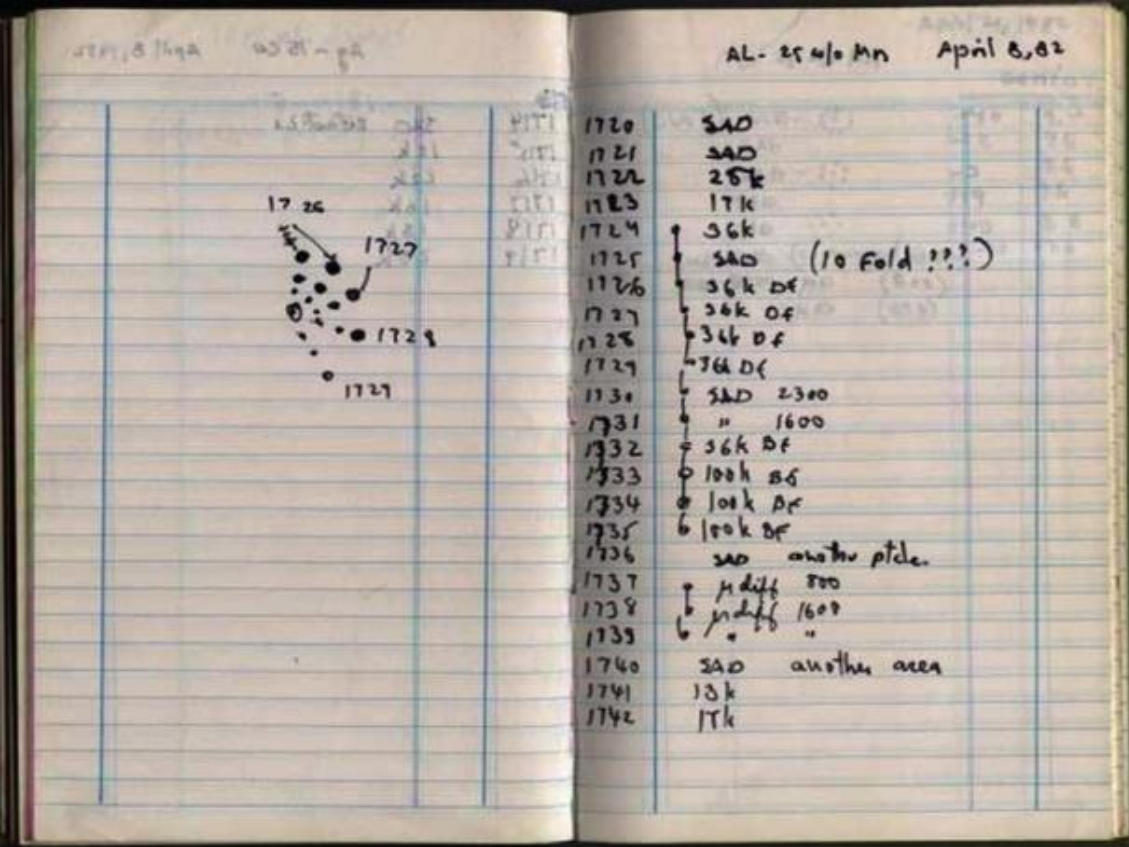 17 26
1727
1728
1729
AL- 25 w/o Mn April 8,82
1720 SAD
1721 SAD
1722 25k
1723 17k
1724 36k
1725 SAD (10 Fold ???)
1726 36k Df
1727 36k Df
1728 36k Df
1729 36k Df
1730 SAD 2300
1731 " 1600
1732 36k BF
1733 100k BF
1734 100k BF
1735 100k BF
1736 SAD another ptcle.
1737 μ diff 800
1738 μ diff 1600
1739 " "
1740 SAD another area
1741 13k
1742 17k